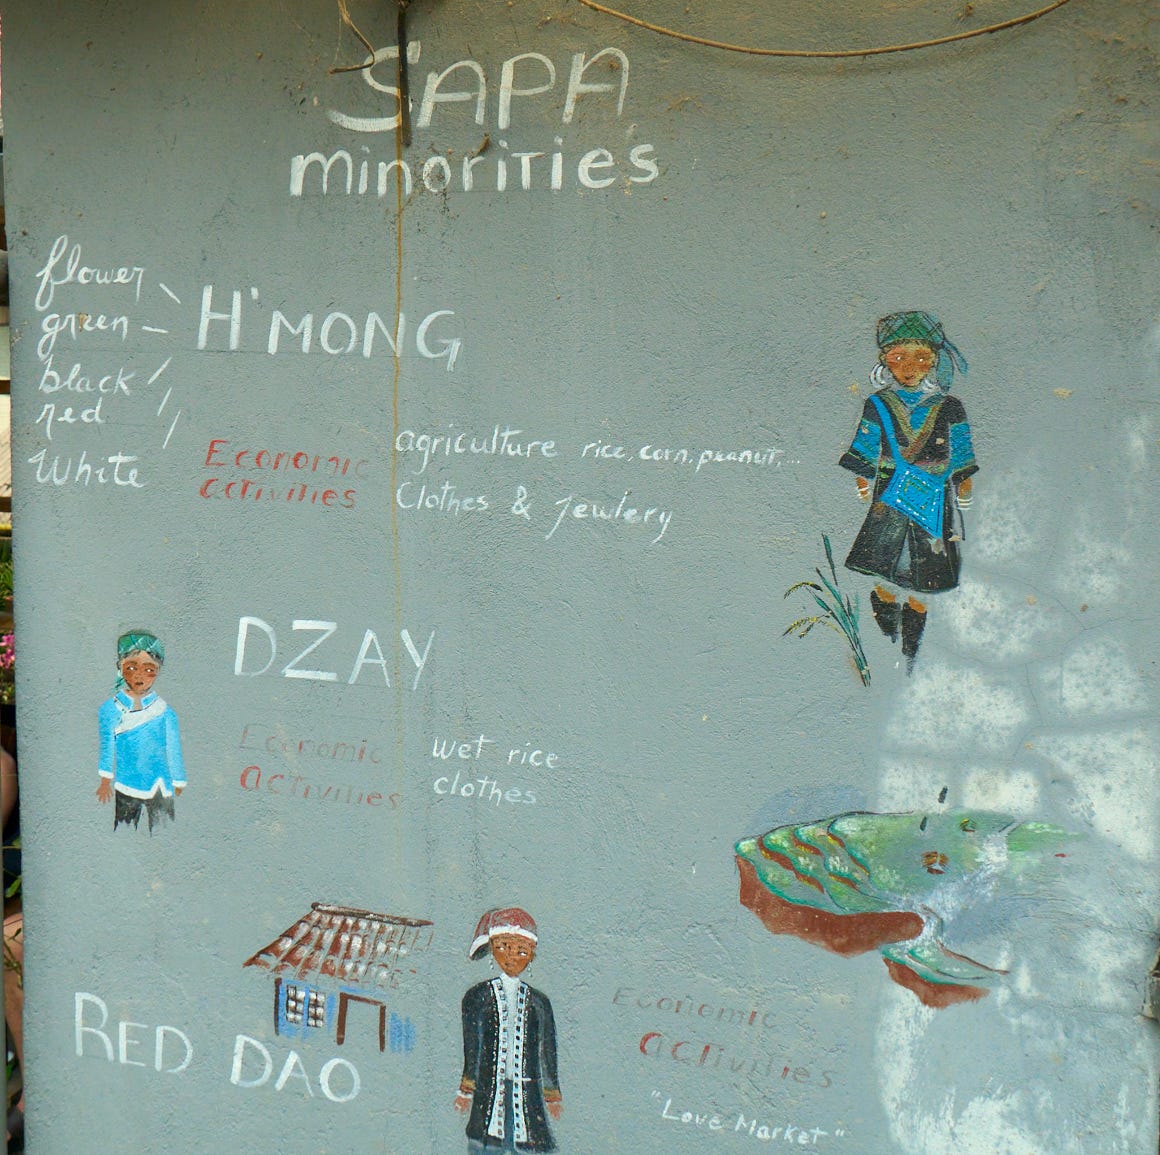 SAPA
minoritie's
flower
green
black
red
White
H'MONG
Economic
activities
agriculture rice, corn, peanut,...
Clothes & jewlery
DZAY
Economic
activities
wet rice
clothes
RED DAO
Economic
activities
"Love Market"